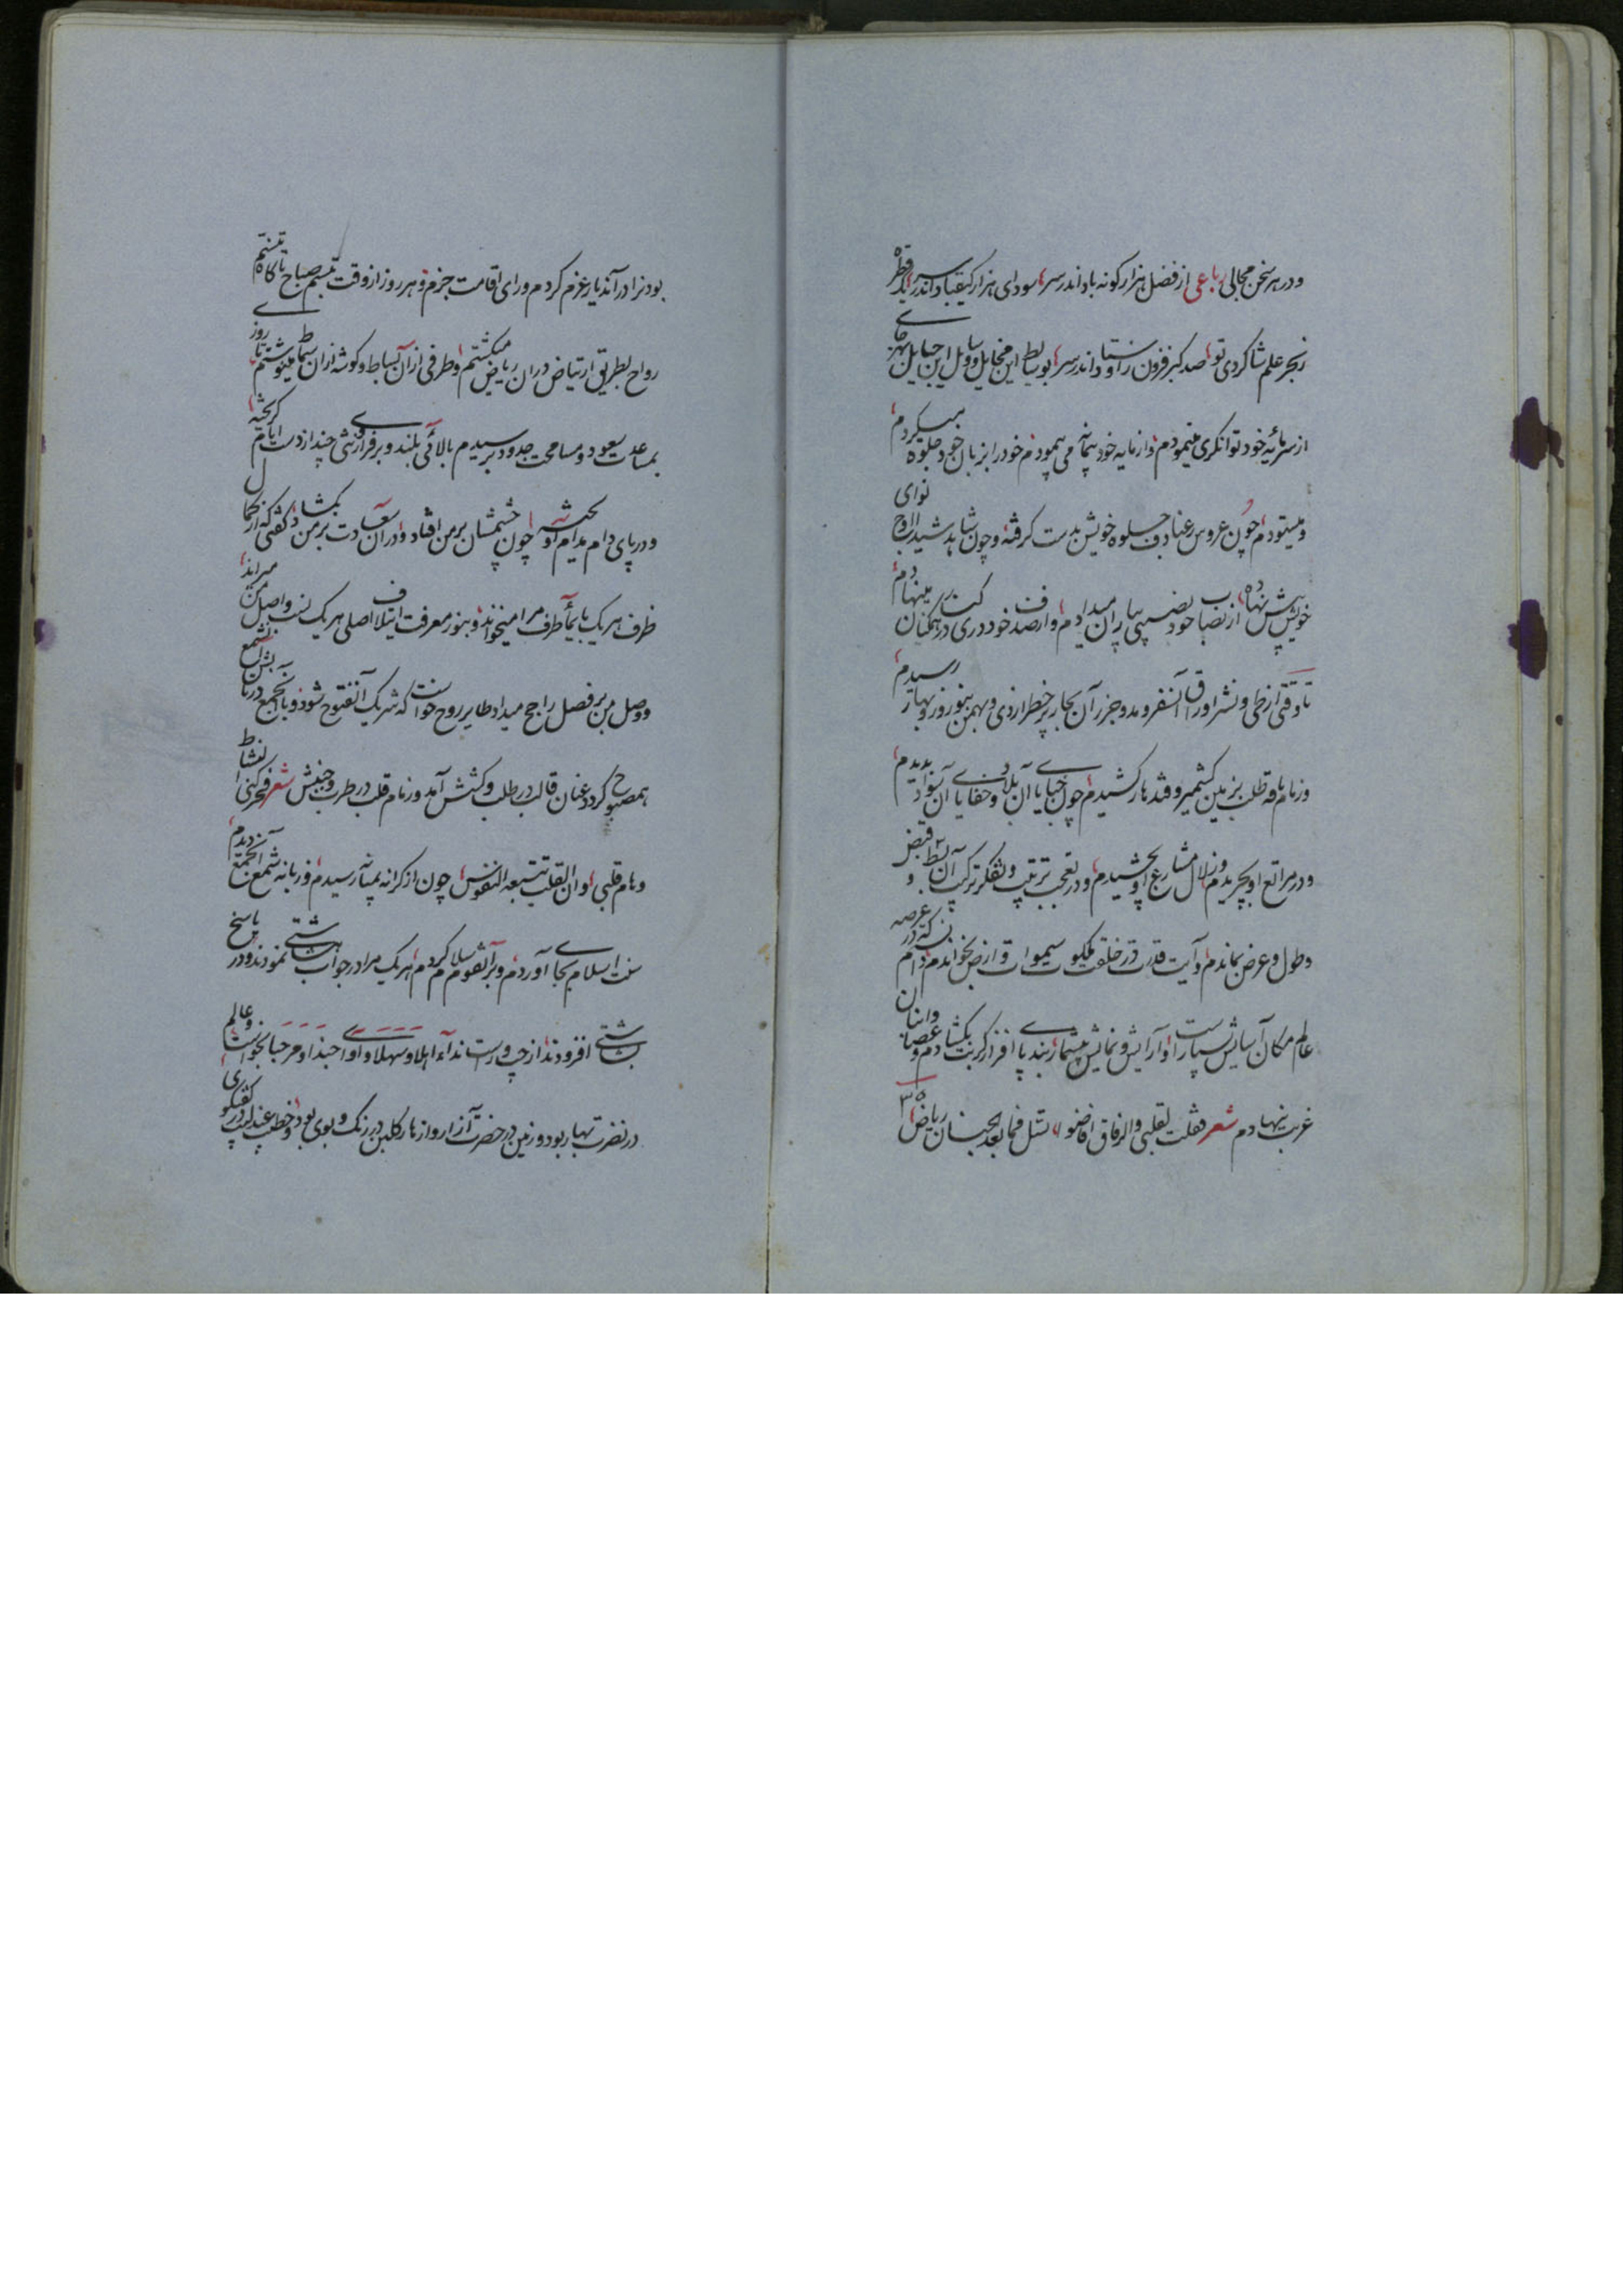 و در هر سخن مجالی رباعی از فضل هزار گونه باد اندر سر سودای هزار کیقباد اندر سر قطره
ز بحر علم شاگردی تو صد گبر فزون ز اوستاد اندر سر بوسایط این مخایل و وسایل این حبایل بهر جای
از سرمایه خود توانگری مینمودم و از مایه خود پیمانه می پیمودم خود را بزبان خود جلوه میکردم
و میستودم چون عروس رعنا دف جلوه خویش بدست گرفته و چون شاهد شیدا لوح نوای
خویش پیش نهاده از نصاب خود نصیبی بیاران میدادم و از صدف خود دری در کنارشان مینهادم
تا وقتی از طی و نشر اوراق آن سفر و مد و جزر آن بحار پر خطر از دی و بهمن بنوروز و بهار رسیدم
و زمام ناقه طلب بزمین کشمیر و قندهار کشیدم چون خبایای آن بلاد و خفایای آن سواد بدیدم
و در مراتع او بچریدم و زلال مشارع او بچشیدم و در تعجب ترتیب و تفکر ترکیب آن بسط و قبض
و طول و عرض بماندم و آیت قدرت در خلقت ملکوت سموات و ارض بخواندم دانستم که در عرصه
عالم مکان آسایش بسیار است و آرایش و نمایش بیشمار بند پای افزار غربت بگشادم و عصای
غربت بنهادم شعر فقلت لقلبی و الرفاق تسل فما بعد الجنان ریاض
بود نرا در آن دیار عزم کردم و رای اقامت جزم و هر روز از وقت تبسم صباح تا گاه تنسم
رواح بطریق ارتیاض در آن ریاض میگشتم و طرفی از آن بساط و گوشه از آن سماط مینوشتم تا روزی
بمساعدت سعود و مسامحت جدود برسیدم ببالائی بلند و بر فرازی تنی چند از دست ایام گریخته
و در پای دام مدام آویخته چون چشمشان بر من افتاد و در آن سعادت بر من بگشاد گفتی که از کمال
ظرف هر یک بایمای طرف مرا میخواند و بنوز معرفت ایتلاف اصلی هر یک نسب و اصل من میراند
و وصل من بر فصل راجح میداد طایر روح خواست که شریک آن فتوح شود و با آن جمع در تابش آن شمع
همصبوح گردد عنان قالب در طلب و کشش آمد و زمام قلب در طرب و جنبش شعر فحرکنی النشاط
و هام قلبی و ان القلب تتبعه النفوس چون از کرانه بمیانه رسیدم و زبانه شمع آن جمع بدیدم
سنت اسلام بجای آوردم و بر آن قوم سلام کردم هر یک مرا در جواب بشاشتی نمودند و در پاسخ
بشاشتی افزودند از چپ و راست نداء اهلا و سهلا و آوای حبذا و مرحبا بخواست و عالم
در نضرت بهار بود و زمین در خضرت آزار و ازهار گلبن در رنگ و بوی بود و خطیب عندلیب در گفتگوی